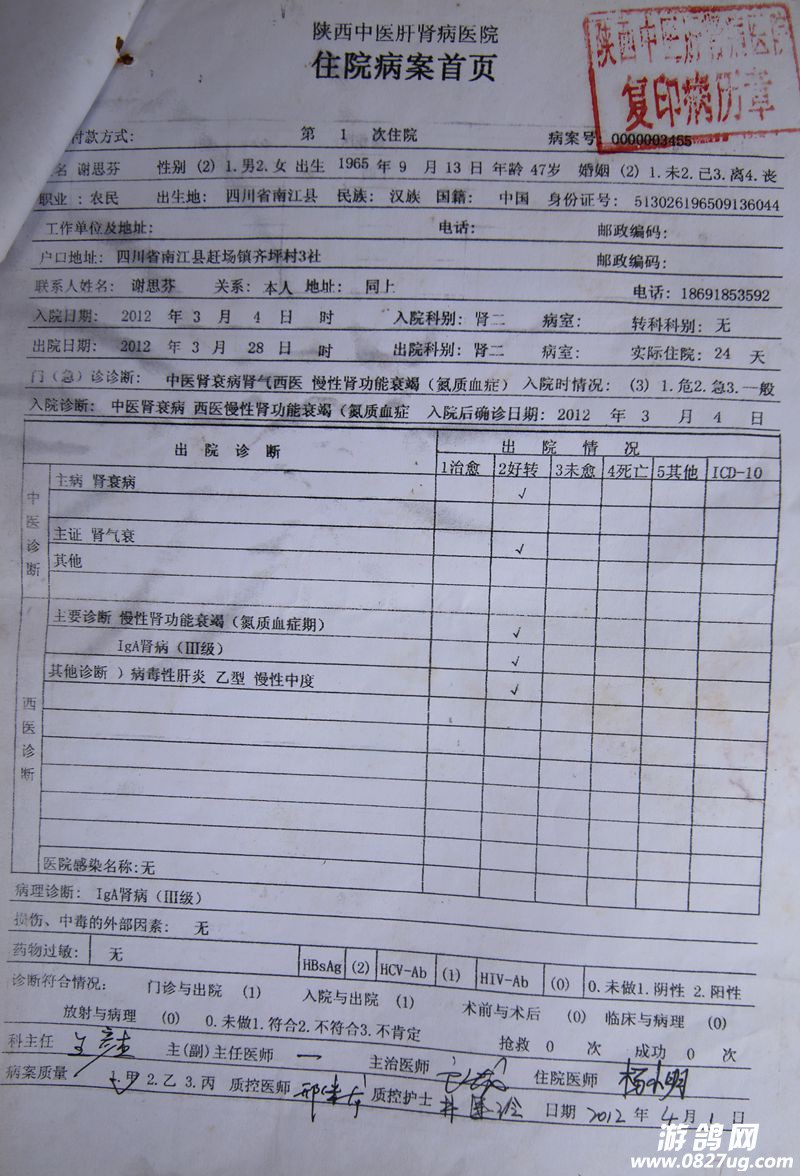 陕西中医肝肾病医院
住院病案首页
陕西中医肝肾病医院
复印病历章
付款方式: 第 1 次住院 病案号 0000003455
名 谢思芬 性别 (2) 1.男2.女 出生 1965 年 9 月 13 日 年龄 47岁 婚姻 (2) 1.未2.已3.离4.丧
职业:农民 出生地: 四川省南江县 民族: 汉族 国籍: 中国 身份证号: 513026196509136044
工作单位及地址: 电话: 邮政编码:
户口地址: 四川省南江县赶场镇齐坪村3社 邮政编码:
联系人姓名: 谢思芬 关系: 本人 地址: 同上 电话: 18691853592
入院日期: 2012 年 3 月 4 日 时 入院科别: 肾二 病室: 转科科别: 无
出院日期: 2012 年 3 月 28 日 时 出院科别: 肾二 病室: 实际住院: 24 天
门(急)诊诊断: 中医肾衰病肾气西医 慢性肾功能衰竭(氮质血症) 入院时情况: (3) 1.危2.急3.一般
入院诊断: 中医肾衰病 西医慢性肾功能衰竭(氮质血症 入院后确诊日期: 2012 年 3 月 4 日
出 院 诊 断 出 院 情 况
1治愈 2好转 3未愈 4死亡 5其他 ICD-10
中医诊断
主病 肾衰病 √
主证 肾气衰 √
其他
西医诊断
主要诊断 慢性肾功能衰竭(氮质血症期) √
IgA肾病(III级) √
其他诊断 )病毒性肝炎 乙型 慢性中度 √
医院感染名称:无
病理诊断: IgA肾病(III级)
损伤、中毒的外部因素: 无
药物过敏: 无 HBsAg (2) HCV-Ab (1) HIV-Ab (0) 0.未做1.阴性 2.阳性
诊断符合情况: 门诊与出院 (1) 入院与出院 (1) 术前与术后 (0) 临床与病理 (0)
放射与病理 (0) 0.未做1.符合2.不符合3.不肯定 抢救 0 次 成功 0 次
科主任 主(副)主任医师 一 主治医师 住院医师
病案质量 1.甲 2.乙 3.丙 质控医师 质控护士 日期 2012 年 4 月 1 日
游鸽网
www.0827ug.com